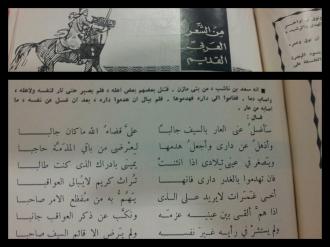 من الشعر
العربي
القديم
■ انه سعد بن ناشب ، من بني مازن . قتل بعضهم بعض اهله ، فلم يصبر حتى ثار لنفسه ولاهله ،
واصاب دما ، فقاموا الى داره فهدموها ، فلم يبال ان هدموا داره ، بعد ان غسل عن نفسه ، ما
اصابه من عار .
قال :
سأغسل عني العار بالسيف جالبا علي قضاء الله ماكان جالبا
وأذهل عن داري وأجعل هدمها لعرضي من باقي المذمة حاجبا
ويصغر في عيني تلادي اذا انثنت يميني بادراك الذي كنت طالبا
فان تهدموا بالغدر داري فانها تراث كريم لايبالي العواقبا
أخي غمرات لايريد على الذي يهم به من مفظع الامر صاحبا
اذا هم ألقى بين عينيه عزمه ونكب عن ذكر العواقب جانبا
ولم يستشر في رأيه غير نفسه ولم يرض الا قائم السيف صاحبا